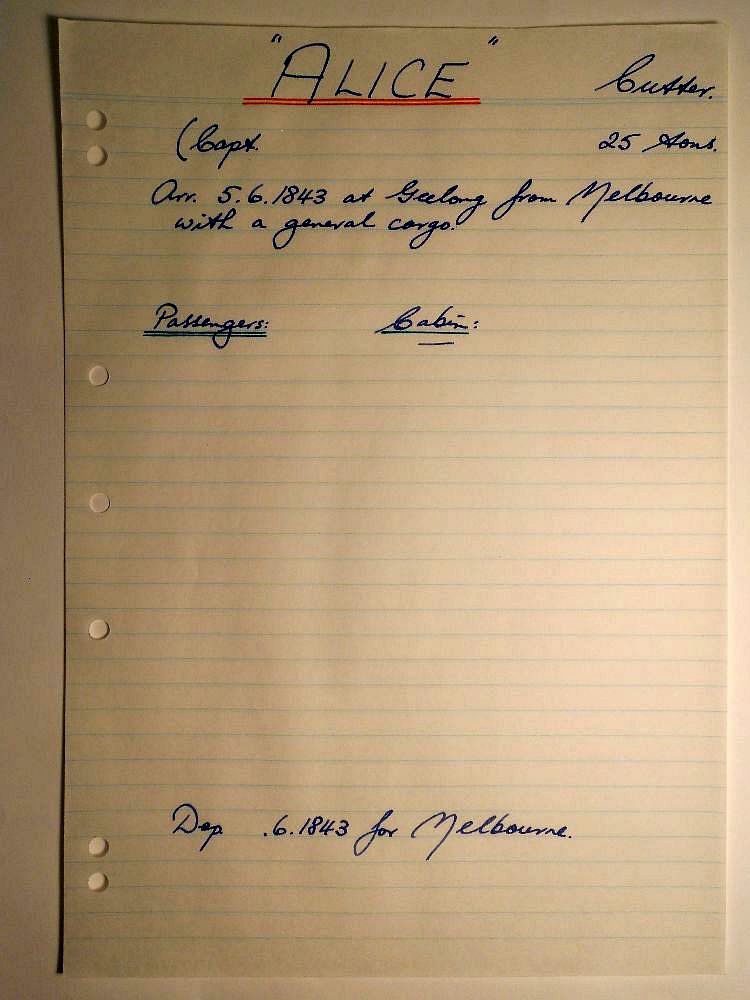 "ALICE" Cutter.
(Capt. 25 tons.
Arr. 5.6.1843 at Geelong from Melbourne
with a general cargo.
Passengers: Cabin:
Dep .6.1843 for Melbourne.